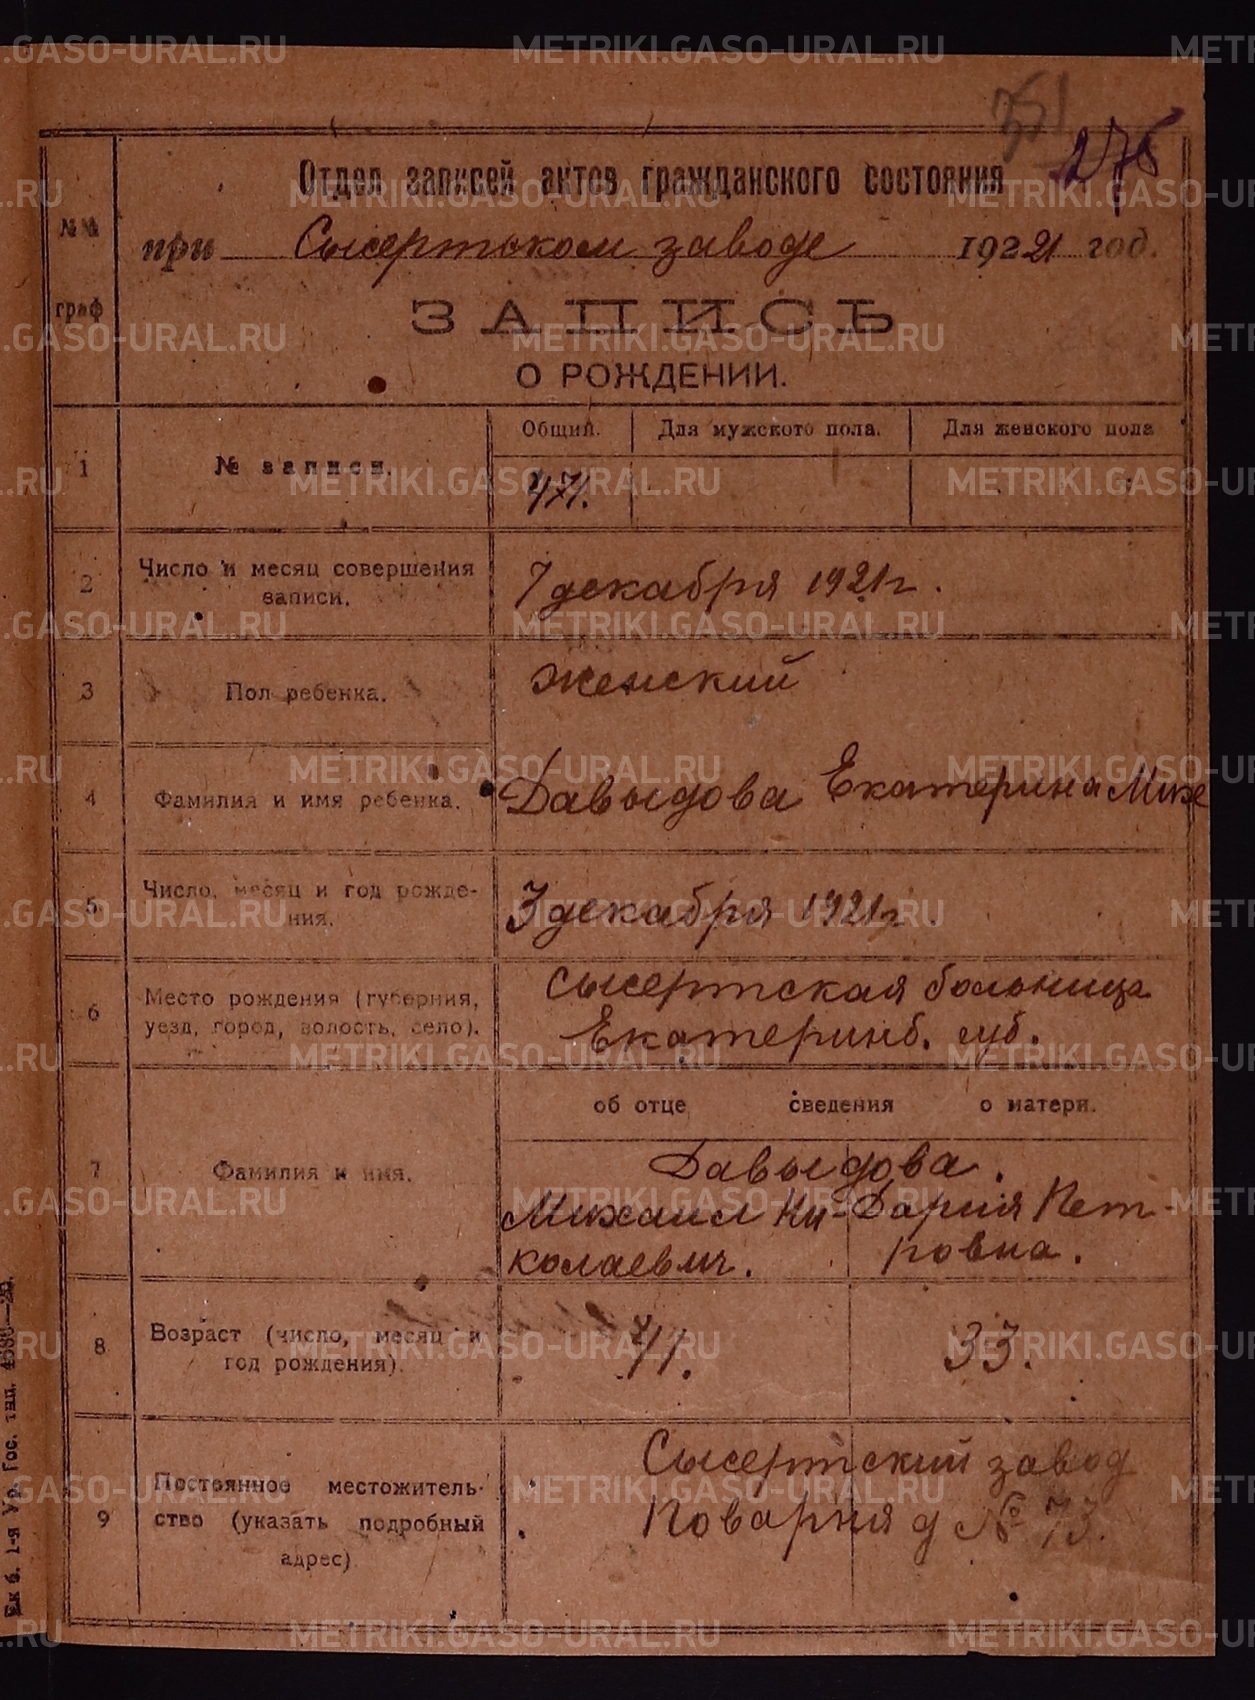 METRIKI.GASO-URAL.RU
351
276
Отдел записей актов гражданского состояния
№№ граф
при Сысертском заводе 1921 год.
ЗАПИСЬ
О РОЖДЕНИИ.
Общий. Для мужского пола. Для женского пола
1 № записи. 471.
2 Число и месяц совершения записи. 7 декабря 1921 г.
3 Пол ребенка. женский
4 Фамилия и имя ребенка. Давыдова Екатерина Михе
5 Число, месяц и год рождения. 3 декабря 1921 г.
6 Место рождения (губерния, уезд, город, волость, село). Сысертская больница
Екатеринб. губ.
об отце сведения о матери.
7 Фамилия и имя. Давыдова.
Михаил Ни- Дария Пет-
колаевич. ровна.
8 Возраст (число, месяц и год рождения). 41. 33.
9 Постоянное местожительство (указать подробный адрес) Сысертский завод
Поварня д № 73.
Ек б. 1-я Ур. Гос. тип.